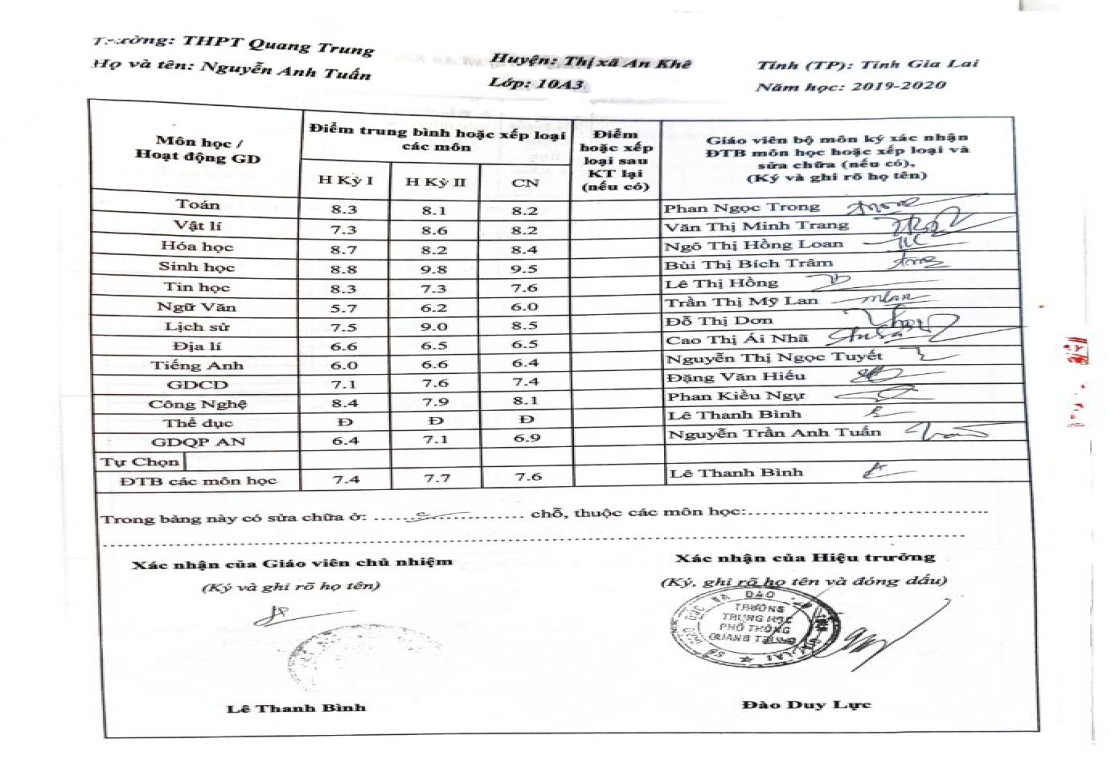 Trường: THPT Quang Trung Huyện: Thị xã An Khê Tỉnh (TP): Tỉnh Gia Lai
Họ và tên: Nguyễn Anh Tuấn Lớp: 10A3 Năm học: 2019-2020
Môn học / Hoạt động GD
Điểm trung bình hoặc xếp loại các môn
H Kỳ I H Kỳ II CN
Điểm hoặc xếp loại sau KT lại (nếu có)
Giáo viên bộ môn ký xác nhận ĐTB môn học hoặc xếp loại và sửa chữa (nếu có), (Ký và ghi rõ họ tên)
Toán 8.3 8.1 8.2 Phan Ngọc Trong
Vật lí 7.3 8.6 8.2 Văn Thị Minh Trang
Hóa học 8.7 8.2 8.4 Ngô Thị Hồng Loan
Sinh học 8.8 9.8 9.5 Bùi Thị Bích Trâm
Tin học 8.3 7.3 7.6 Lê Thị Hồng
Ngữ Văn 5.7 6.2 6.0 Trần Thị Mỹ Lan
Lịch sử 7.5 9.0 8.5 Đỗ Thị Dơn
Địa lí 6.6 6.5 6.5 Cao Thị Ái Nhã
Tiếng Anh 6.0 6.6 6.4 Nguyễn Thị Ngọc Tuyết
GDCD 7.1 7.6 7.4 Đặng Văn Hiếu
Công Nghệ 8.4 7.9 8.1 Phan Kiều Ngự
Thể dục Đ Đ Đ Lê Thanh Bình
GDQP AN 6.4 7.1 6.9 Nguyễn Trần Anh Tuấn
Tự Chọn
ĐTB các môn học 7.4 7.7 7.6 Lê Thanh Bình
Trong bảng này có sửa chữa ở: .................... chỗ, thuộc các môn học:....................
Xác nhận của Giáo viên chủ nhiệm
(Ký và ghi rõ họ tên)
Lê Thanh Bình
Xác nhận của Hiệu trưởng
(Ký, ghi rõ họ tên và đóng dấu)
TRƯỜNG
TRUNG HỌC
PHỔ THÔNG
QUANG TRUNG
Đào Duy Lực